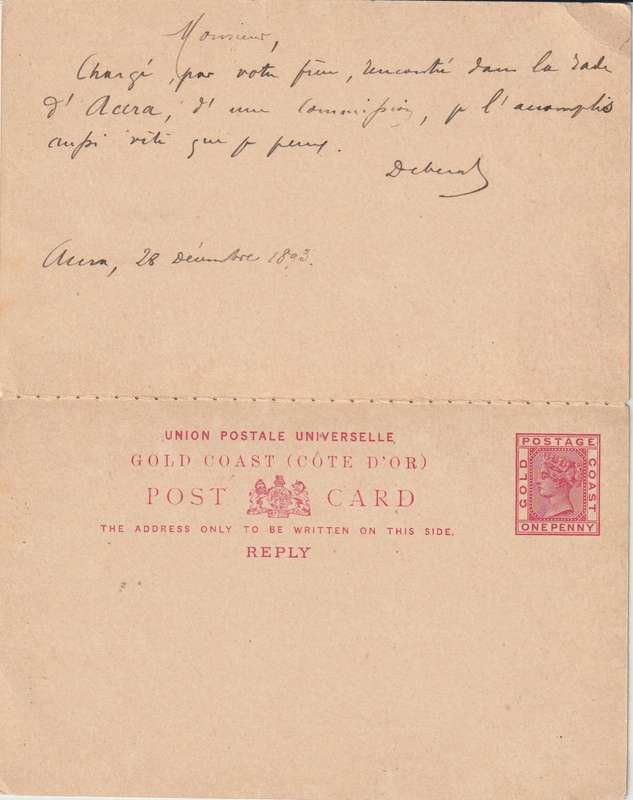 Monsieur,
Chargé, par votre frère, rencontré dans la rade
d'Accra, d'une commission, je l'accomplis
aussi vite que je peux.
Accra, 28 Décembre 1893.
UNION POSTALE UNIVERSELLE
GOLD COAST (CÔTE D'OR)
POST CARD
THE ADDRESS ONLY TO BE WRITTEN ON THIS SIDE.
REPLY
POSTAGE
GOLD COAST
ONE PENNY